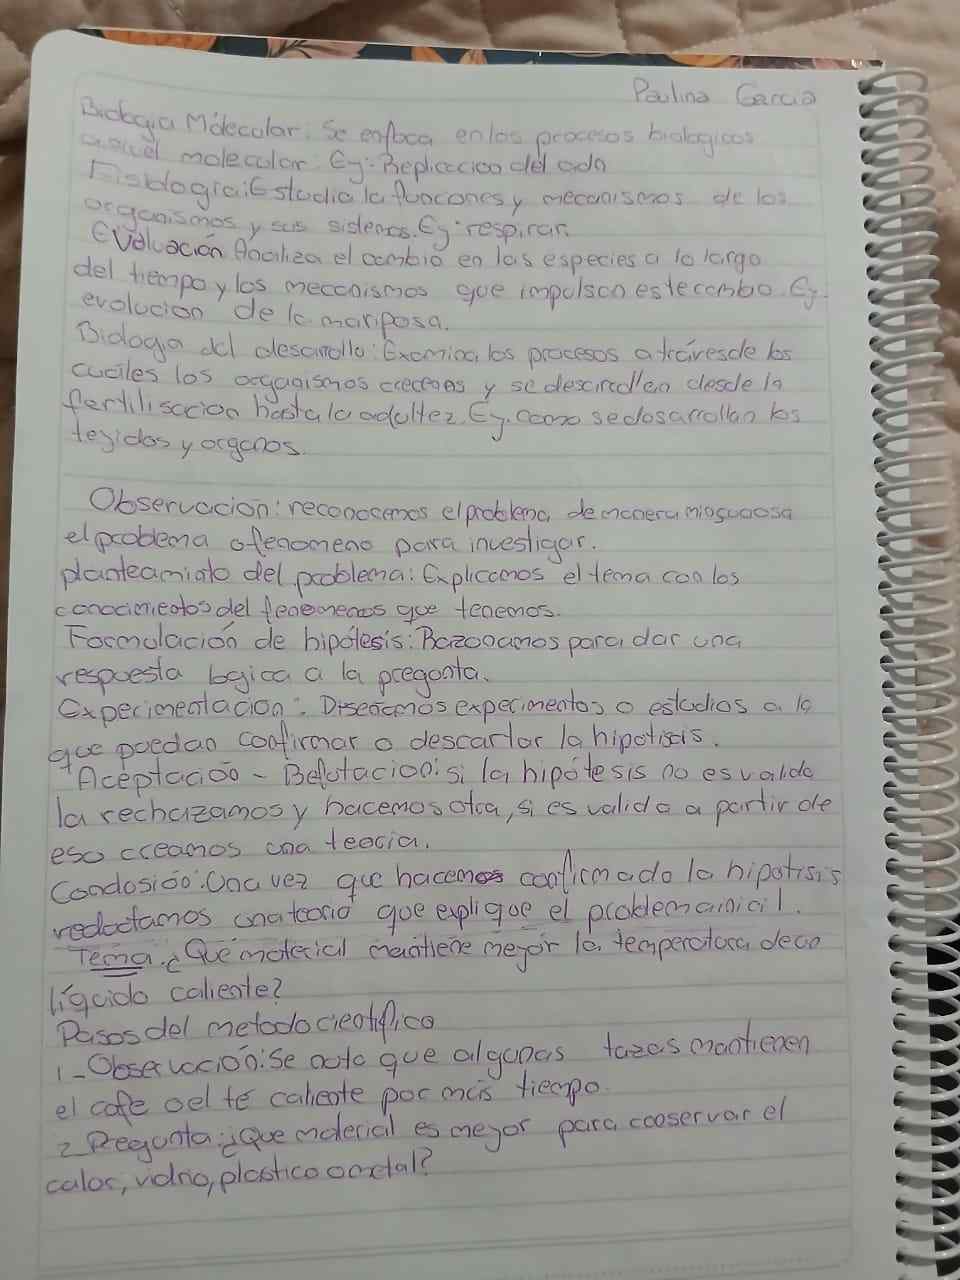 Paulina Garcia
Biologia Molecular: Se enfoca en los procesos biologicos
anivel molecular. Ej-Replicacion del adn
Fisiologia: Estudia la funcones y mecanismos de los
organismos y sus sistemas. Ej: respirar.
Evolucación Analiza el cambio en las especies a lo largo
del tiempo y los mecanismos que impulsan este cambio. Ej.
evolucion de la mariposa.
Biologia del desarrollo: Examina los procesos a tráves de los
cuáles los organismos crecen y se desarrollan desde la
fertilisacion hasta la adultez. Ej. como se dosarrollan los
tejidos y organos.
Observación: reconocemos el problema, de manera
el problema o fenomeno para investigar.
planteamiato del problema: Explicamos el tema con los
conocimientos del fenomenos que tenemos.
Formulación de hipótesis: Razonamos para dar una
respuesta logica a la pregunta.
Experimentación: Diseñamos experimentos o estudios a la
que puedan confirmar o descartar la hipotisis.
Aceptación - Refutacion: si la hipótesis no es valida
la rechazamos y hacemos otra, si es valida a partir de
eso creamos una teoria.
Conclosión: Una vez que hacemos confirmado la hipotisis
redactamos una teoria que explique el problema inicial.
Tema: ¿Qué material mantiene mejor la temperatura de un
líquido caliente?
Pasos del metodo cientifico
1_ Observación: Se nota que algunas tazas mantienen
el cafe o el té caliente por más tiempo.
2 Pregunta: ¿Que material es mejor para conservar el
calor, vidrio, plastico o metal?